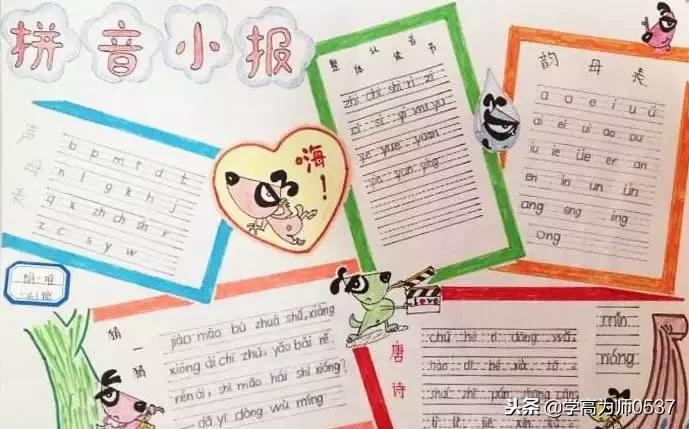 拼音小报
声母表
b p m f d t
n l g k h j
q x zh ch sh r
z c s y w
嗨!
整体认读音节
zhi chi shi ri zi
ci si yi wu yu
ye yue yuan
yin yun ying
韵母表
a o e i u ü
ai ei ui ao ou
iu ie üe er an
en in un ün
ang eng ing
ong
猜一猜
jiào māo bù zhuā shǔ,xiàng
xióng ài chī zhú,yào bǎi
rén ài,shì māo hái shì xióng?
dǎ yī dòng wù míng
唐诗
chú hé rì dāng wǔ,
hàn dī hé xià tǔ
shuí zhī pán zhōng cān
mǐn
nóng
头条 @学高为师0537